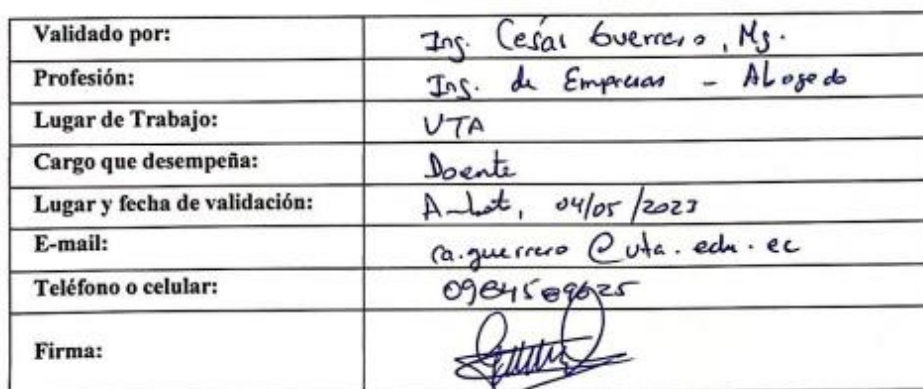 Validado por: Ing. César Guerrero, Mg.
Profesión: Ing. de Empresas - Abogado
Lugar de Trabajo: UTA
Cargo que desempeña: Docente
Lugar y fecha de validación: Ambato, 04/05/2023
E-mail: ca.guerrero@uta.edu.ec
Teléfono o celular:
Firma: